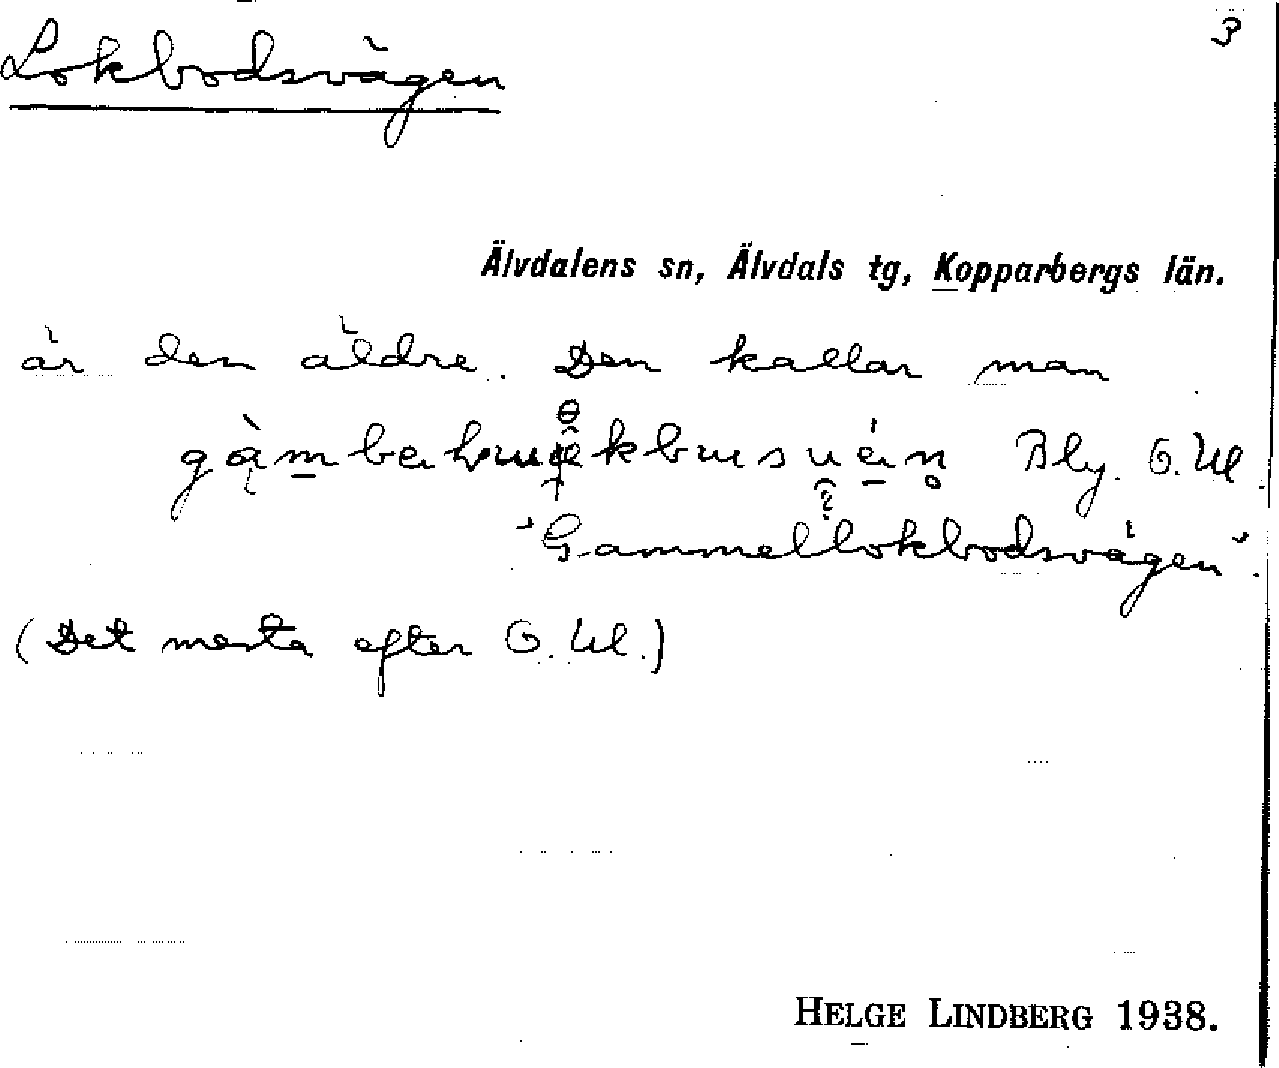 3
Lokbodsvägen
Älvdalens sn, Älvdals tg, Kopparbergs län.
är den äldre. Den kallar man
Bly. G. Ul.
"Gammellokbodsvägen".
(Det mesta efter G. Ul.)
HELGE LINDBERG 1938.